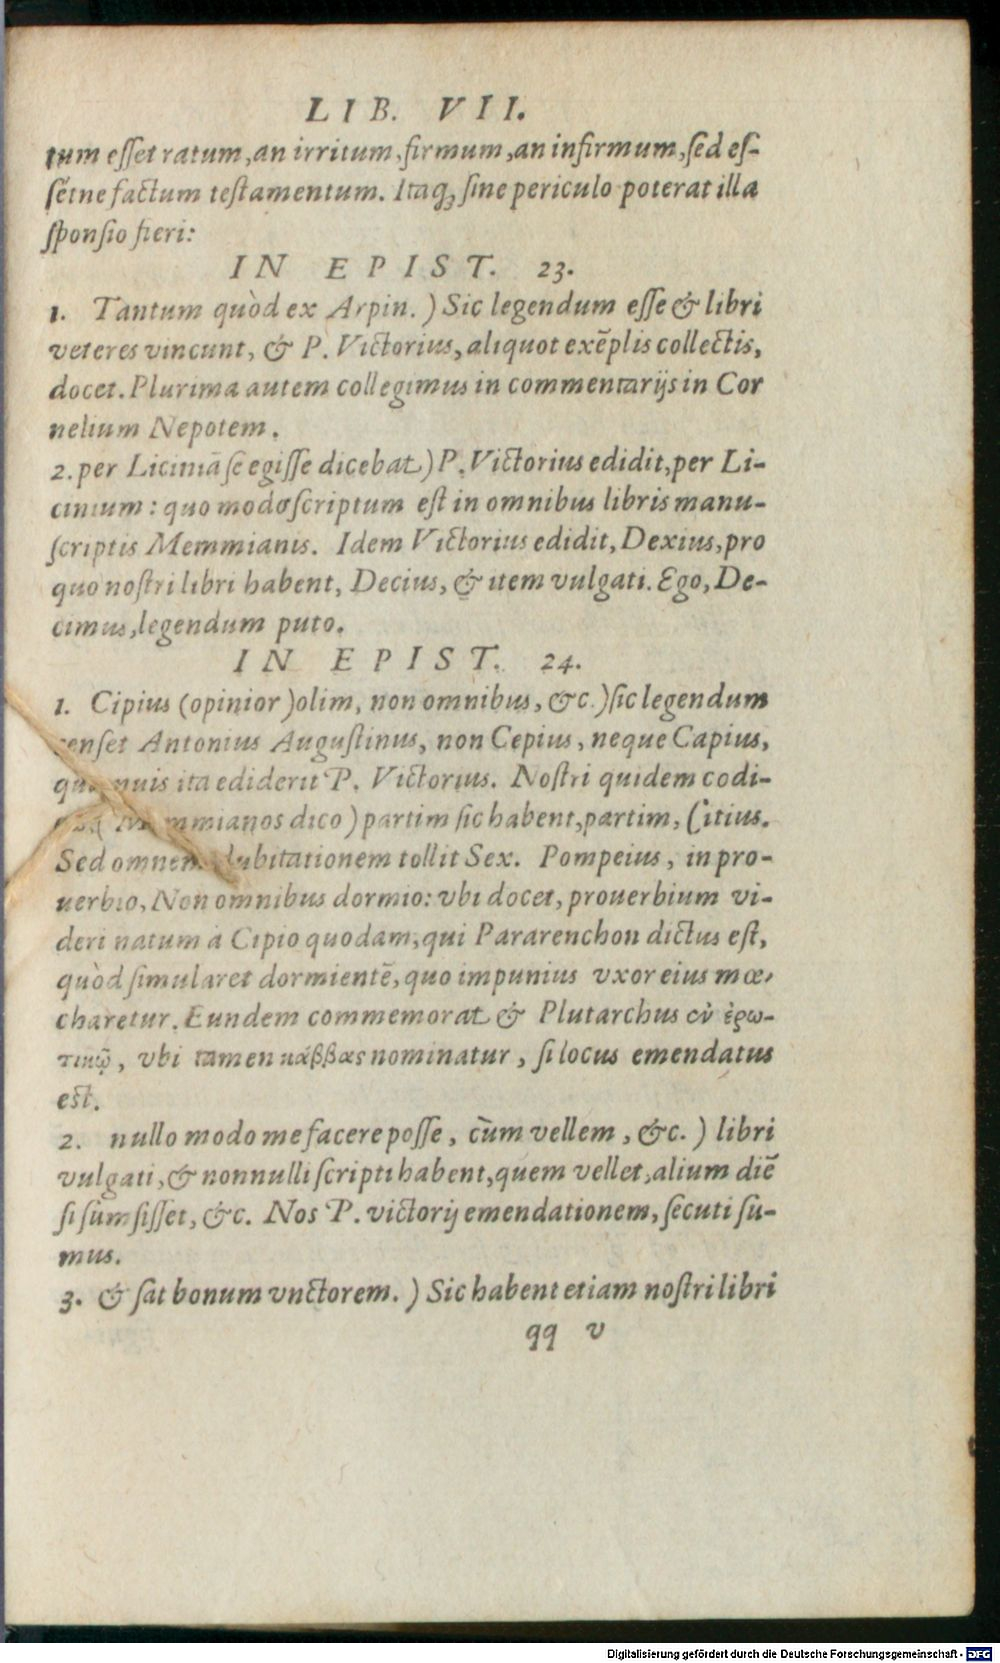 LIB. VII.
tum esset ratum, an irritum, firmum, an infirmum, sed es-
sétne factum testamentum. Itaq; sine periculo poterat illa
sponsio fieri:
IN EPIST. 23.
1. Tantum quòd ex Arpin. ) Sic legendum esse & libri
veteres vincunt, & P. Victorius, aliquot exẽplis collectis,
docet. Plurima autem collegimus in commentarijs in Cor
nelium Nepotem.
2. per Liciniũ se egisse dicebat ) P. Victorius edidit, per Li-
cinium: quo modo scriptum est in omnibus libris manu-
scriptis Memmianis. Idem Victorius edidit, Dexius, pro
quo nostri libri habent, Decius, & item vulgati. Ego, De-
cimus, legendum puto.
IN EPIST. 24.
1. Cipius (opinior) olim, non omnibus, &c. ) sic legendum
censet Antonius Augustinus, non Cepius, neque Capius,
quamuis ita ediderit P. Victorius. Nostri quidem codi-
Memmianos dico ) partim sic habent, partim, Citius.
Sed omnem dubitationem tollit Sex. Pompeius, in pro-
uerbio, Non omnibus dormio: vbi docet, prouerbium vi-
deri natum à Cipio quodam, qui Pararenchon dictus est,
quòd simularet dormientẽ, quo impunius vxor eius mœ-
charetur. Eundem commemorat & Plutarchus ἐν ἐρω-
τικῷ, vbi tamen κάββας nominatur, si locus emendatus
est.
2. nullo modo me facere posse, cùm vellem, &c. ) libri
vulgati, & nonnulli scripti habent, quem vellet, alium diẽ
si sumsisset, &c. Nos P. victorij emendationem, secuti su-
mus.
3. & sat bonum vnctorem. ) Sic habent etiam nostri libri
qq v
Digitalisierung gefördert durch die Deutsche Forschungsgemeinschaft - DFG